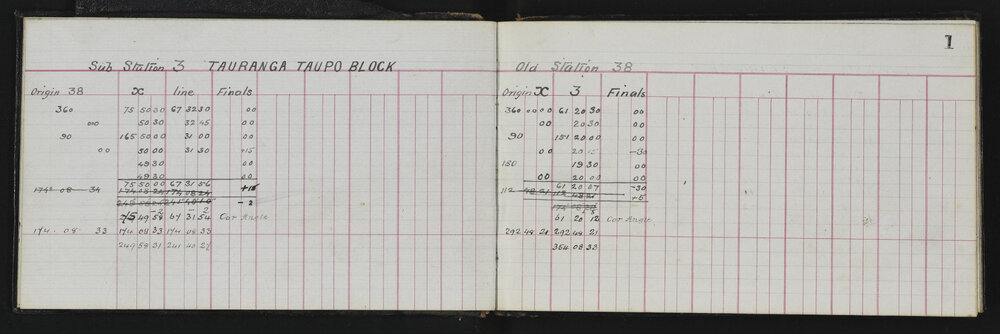 Sub Station 3 TAURANGA TAUPO BLOCK
Origin 38 x line Finals
360 75 50 30 67 32 30 00
00 50 30 32 45 00
90 165 50 00 31 00 00
00 50 00 31 30 +15
49 30 00
49 30 00
75 50 00 67 31 56 +15
174 08 34 174 08 24 174 08 24
- 2
2 2
75 49 58 67 31 54 Cor Angle
174 08 33 174 08 33 174 08 33
249 58 31 241 40 27
1
Old Station 38
Origin x 3 Finals
360 00 00 61 20 30 00
00 20 30 00
90 151 20 00 00
00 20 15 -30
180 19 30 00
00 20 00 00
61 20 07 -30
112 48 21 112 48 21 +5
174 08
5
61 20 12 Cor Angle
292 48 21 292 48 21
354 08 33